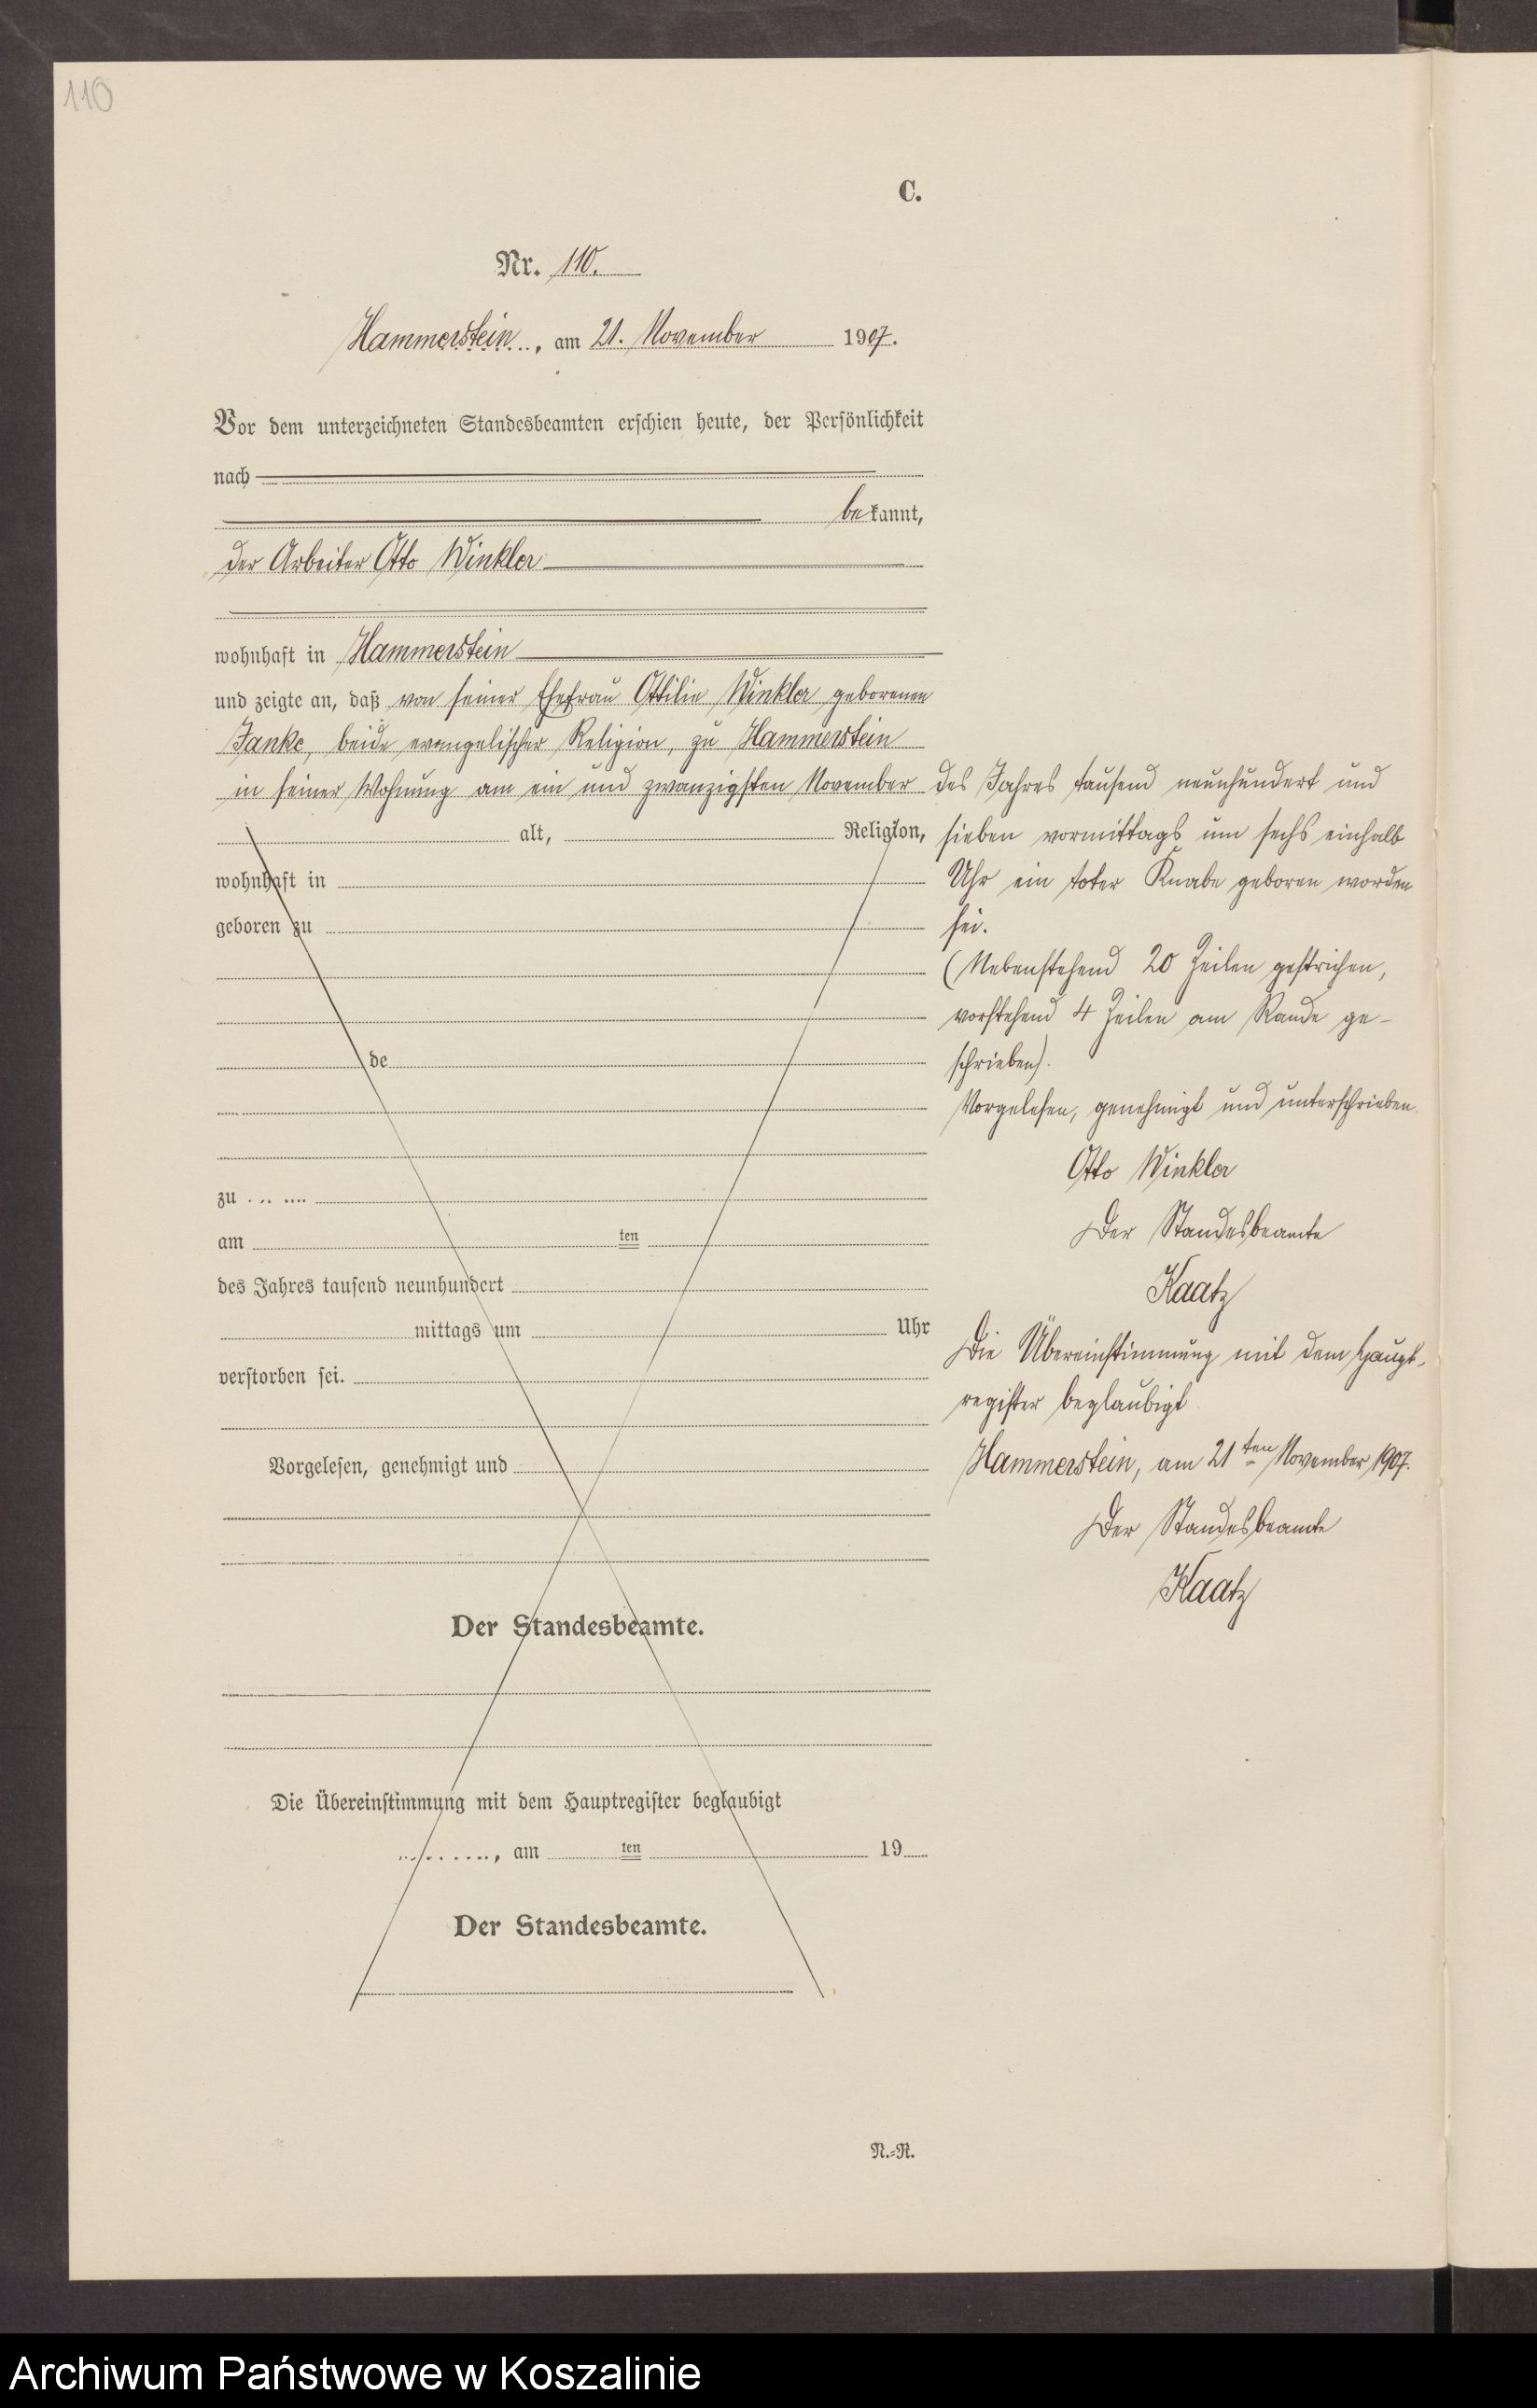 110
C.
Nr. 110.
Hammerstein, am 21. November 1907.
Vor dem unterzeichneten Standesbeamten erschien heute, der Persönlichkeit
nach
bekannt,
der Arbeiter Otto Winkler
wohnhaft in Hammerstein
und zeigte an, daß von seiner Ehefrau Ottilie Winkler geborenen
Janke, beide evangelischer Religion, zu Hammerstein
in seiner Wohnung am ein und zwanzigsten November des Jahres tausend neunhundert und
alt, Religion,
sieben vormittags um sechs einhalb
wohnhaft in
Uhr ein toter Knabe geboren worden
geboren zu
sei.
(Nebenstehend 20 Zeilen gestrichen,
vorstehend 4 Zeilen am Rande ge-
de
schrieben).
Vorgelesen, genehmigt und unterschrieben.
Otto Winkler
zu
Der Standesbeamte
am ten
des Jahres tausend neunhundert
Kaatz
mittags um Uhr
Die Übereinstimmung mit dem Haupt-
verstorben sei.
register beglaubigt
Vorgelesen, genehmigt und
Hammerstein, am 21ten November 1907.
Der Standesbeamte
Kaatz
Der Standesbeamte.
Die Übereinstimmung mit dem Hauptregister beglaubigt
, am ten 19
Der Standesbeamte.
N.-R.
Archiwum Państwowe w Koszalinie